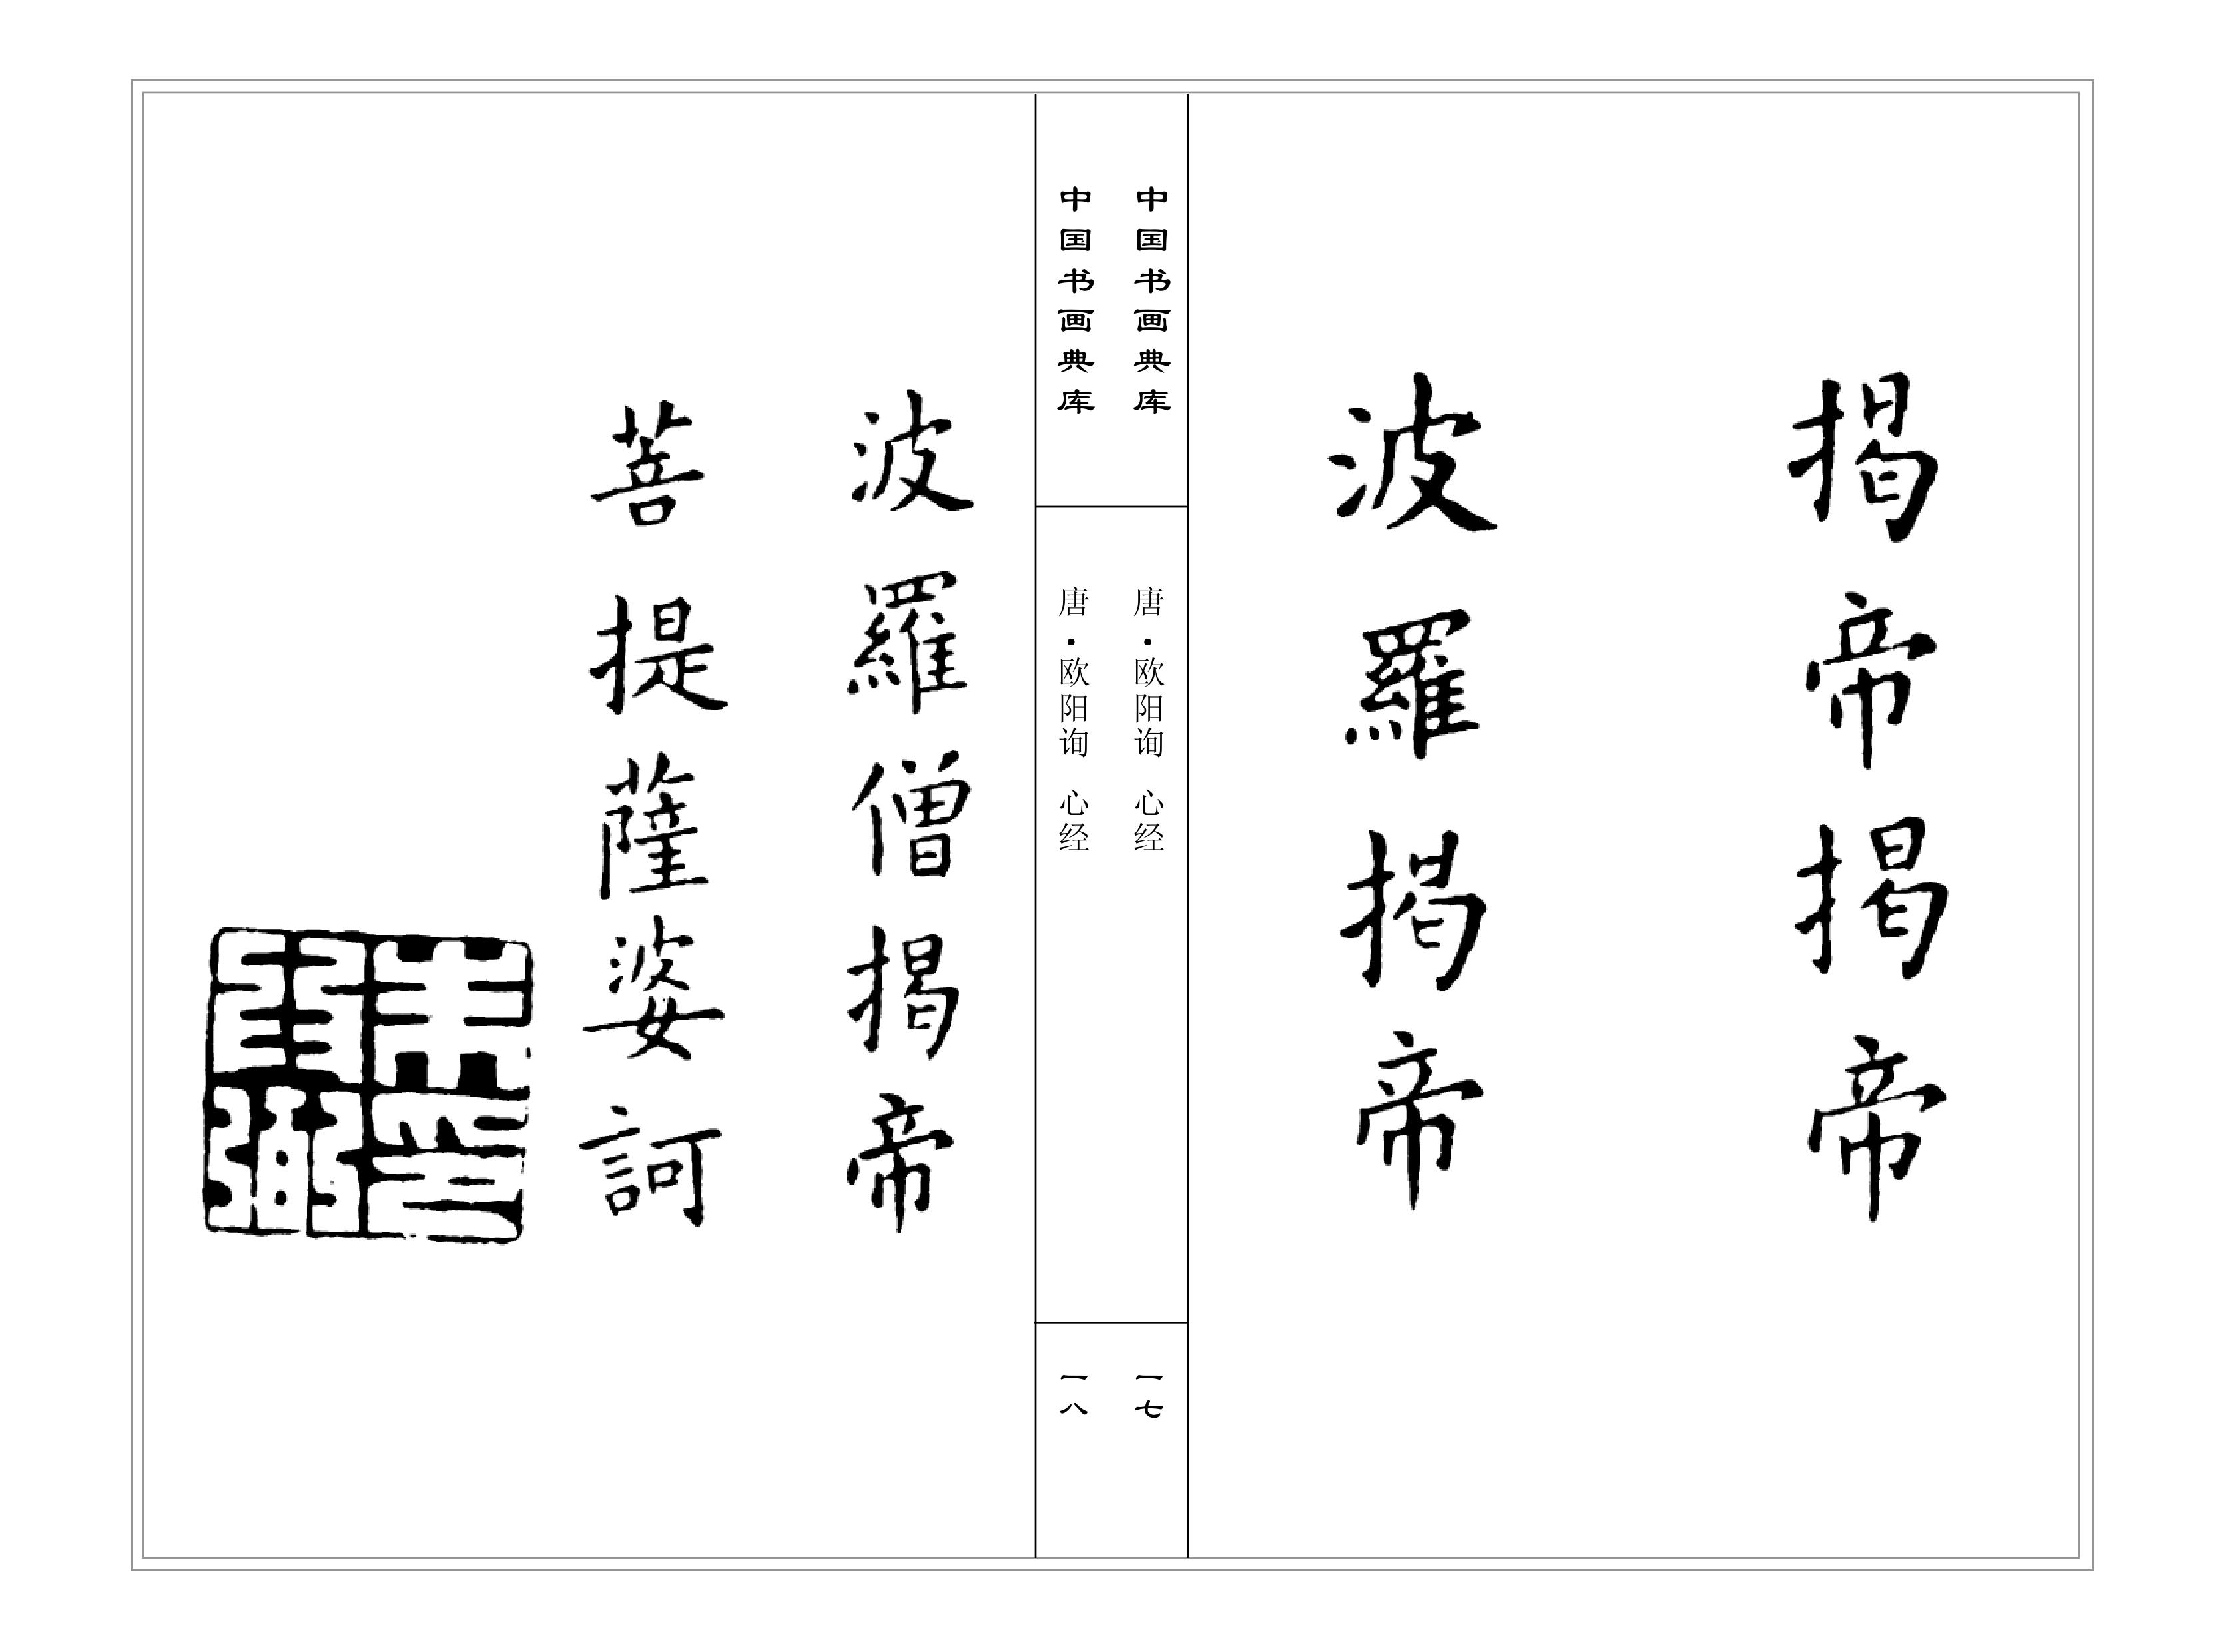 揭帝揭帝
波羅揭帝
中国书画典库
唐·欧阳询 心经
一七
中国书画典库
唐·欧阳询 心经
一八
波羅僧揭帝
菩提薩婆訶